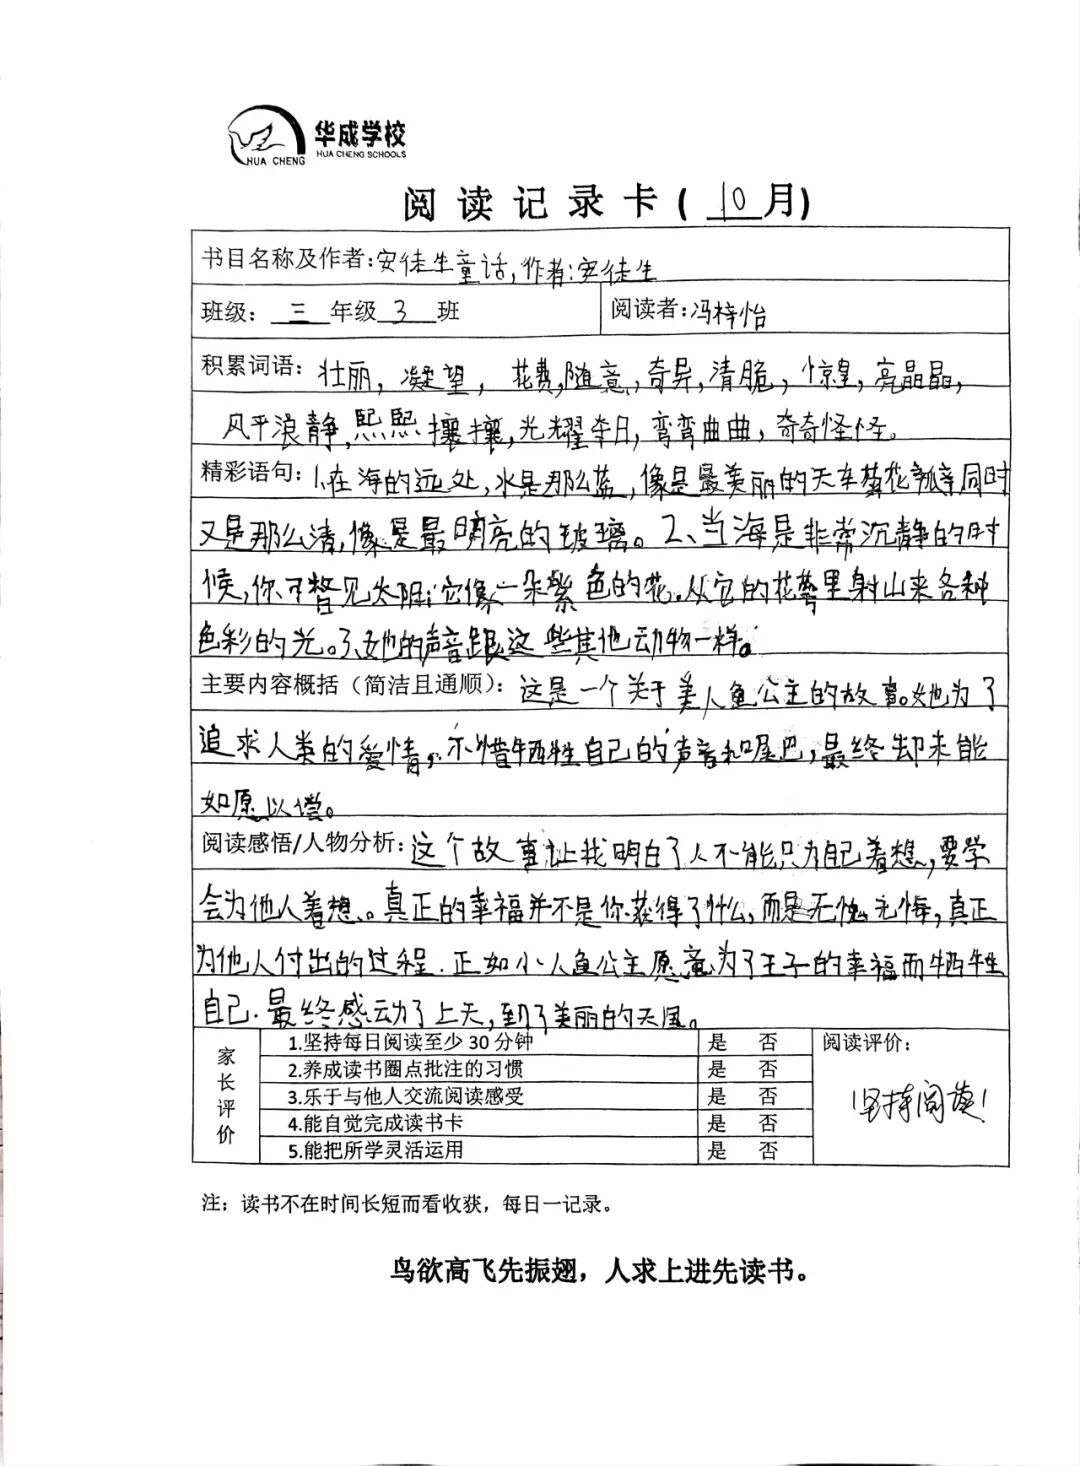 华成学校
HUA CHENG SCHOOLS
HUA CHENG
阅读记录卡(10月)
书目名称及作者:安徒生童话,作者:安徒生
班级:三年级3班
阅读者:冯梓怡
积累词语:壮丽,凝望,花费,随意,奇异,清脆,惊皇,亮晶晶,
风平浪静,熙熙攘攘,光耀夺目,弯弯曲曲,奇奇怪怪。
精彩语句:1、在海的远处,水是那么蓝,像是最美丽的矢车菊花瓣,同时
又是那么清,像是最明亮的玻璃。2、当海是非常沉静的时
候,你可瞥见太阳;它像一朵紫色的花。从它的花萼里射出来各种
色彩的光。3、她的声音跟这些其他动物一样。
主要内容概括(简洁且通顺):这是一个关于美人鱼公主的故事。她为了
追求人类的爱情,不惜牺牲自己的声音和尾巴,最终却未能
如愿以偿。
阅读感悟/人物分析:这个故事让我明白了人不能只为自己着想,要学
会为他人着想。真正的幸福并不是你获得了什么,而是无愧无悔,真正
为他人付出的过程.正如小人鱼公主愿意为了王子的幸福而牺牲
自己.最终感动了上天,到了美丽的天国。
家长评价
1.坚持每日阅读至少30分钟 是 否
2.养成读书圈点批注的习惯 是 否
3.乐于与他人交流阅读感受 是 否
4.能自觉完成读书卡 是 否
5.能把所学灵活运用 是 否
阅读评价:
坚持阅读!
注:读书不在时间长短而看收获,每日一记录。
鸟欲高飞先振翅,人求上进先读书。